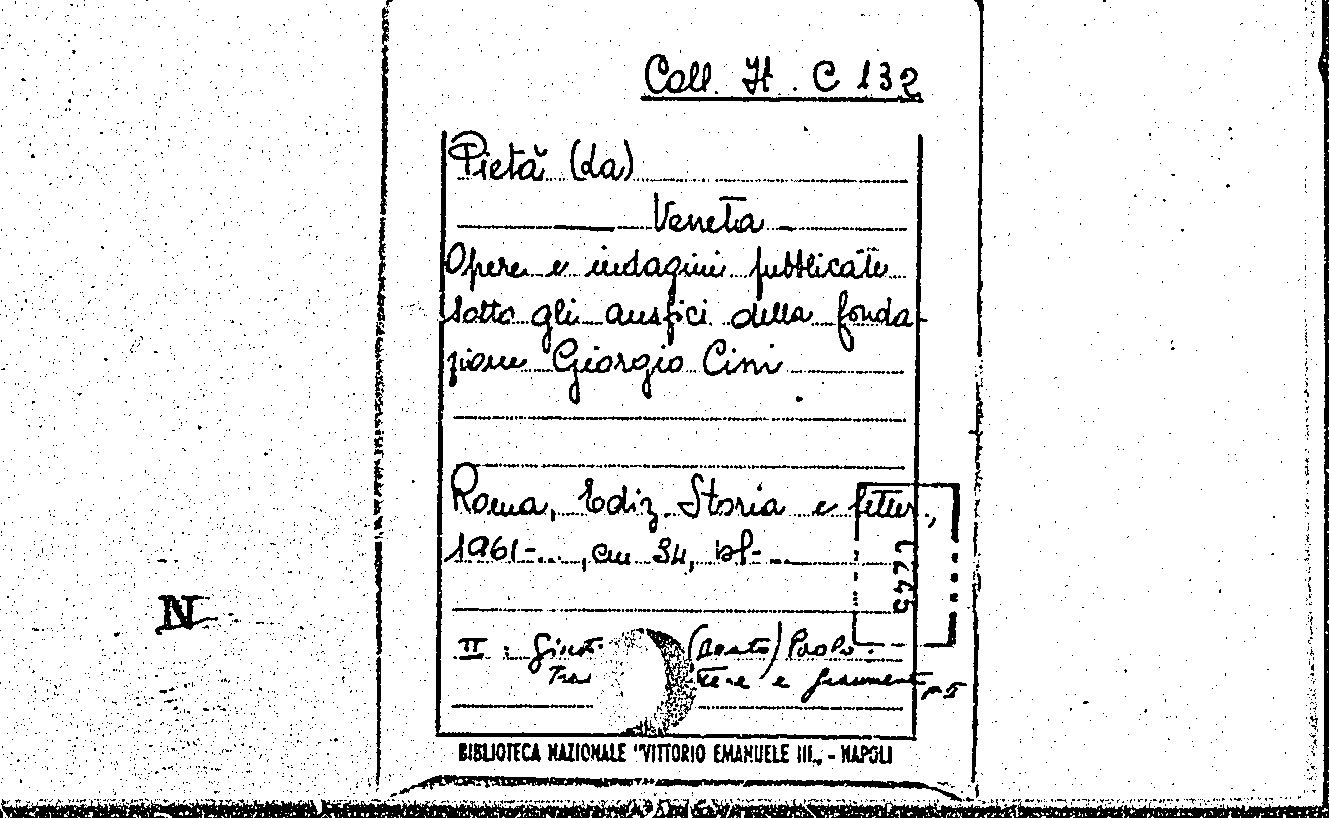 Coll. H. C 132
Pietà (da)
Veneta
Opere e indagini pubblicate
sotto gli auspici della fonda-
zione Giorgio Cini
Roma, Ediz. Storia e letter.,
1961-..., cm 34,
II : (Beato) Paolo.
e frammenti
7245
N
BIBLIOTECA NAZIONALE "VITTORIO EMANUELE III„ - NAPOLI